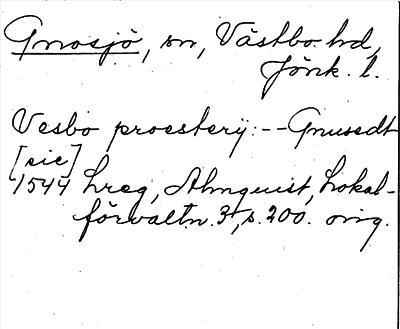 Gnosjö, sn, Västbo hd,
Jönk. l.
Vesbo proesterij: -- Gnusedt
[sic]
1544 hreg, Almquist, Lokal-
förvaltn. 3, s. 200. orig.